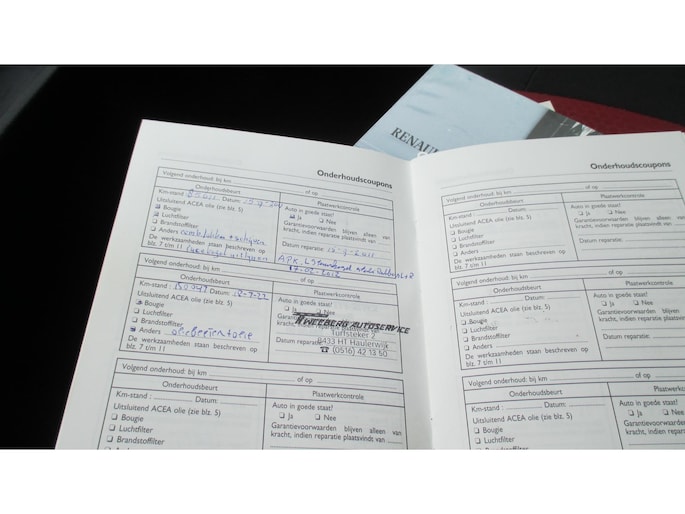 RENAUL
Onderhoudscoupons
Volgend onderhoud: bij km of op
Onderhoudsbeurt
Plaatwerkcontrole
Km-stand Datum
Uitsluitend ACEA olie (zie blz. 5)
Bougie
Luchtfilter
Brandstoffilter
Anders
De werkzaamheden staan beschreven op
blz. 7 t/m 11
Auto in goede staat!
Ja Nee
Garantievoorwaarden blijven alleen van
kracht, indien reparatie plaatsvindt van
Datum reparatie
17-02-2012
Volgend onderhoud: bij km of op
Onderhoudsbeurt
Plaatwerkcontrole
Km-stand : Datum:
Uitsluitend ACEA olie (zie blz. 5)
Bougie
Luchtfilter
Brandstoffilter
Anders
De werkzaamheden staan beschreven op
blz. 7 t/m 11
Auto in goede staat!
Datum reparatie
TWEEBERG AUTOSERVICE
Turfsteker 2
8433 HT Haulerwijk
☎ (0516) 42 13 50
Volgend onderhoud: bij km of op
Onderhoudsbeurt
Plaatwerkcontrole
Km-stand : Datum:
Uitsluitend ACEA olie (zie blz. 5)
Bougie
Luchtfilter
Brandstoffilter
Auto in goede staat!
Ja Nee
Garantievoorwaarden blijven alleen van
kracht, indien reparatie plaatsvindt van
Onderhoudscoupons
Volgend onderhoud: bij km of op
Onderhoudsbeurt
Plaatwerkcontrole
Km-stand : Datum:
Uitsluitend ACEA olie (zie blz. 5)
Bougie
Luchtfilter
Brandstoffilter
Anders
De werkzaamheden staan beschreven op
blz. 7 t/m 11
Auto in goede staat!
Ja Nee
Garantievoorwaarden blijven alleen van
kracht, indien reparatie plaatsvindt van
Datum reparatie:
Volgend onderhoud: bij km of op
Onderhoudsbeurt
Plaatwerkcontrole
Km-stand : Datum:
Uitsluitend ACEA olie (zie blz. 5)
Bougie
Luchtfilter
Brandstoffilter
Anders
De werkzaamheden staan beschreven op
blz. 7 t/m 11
Auto in goede staat!
Ja Nee
Garantievoorwaarden blijven alleen van
kracht, indien reparatie plaatsvindt van
Datum reparatie:
Volgend onderhoud: bij km of op
Onderhoudsbeurt
Plaatwerkcontrole
Km-stand : Datum:
Uitsluitend ACEA olie (zie blz. 5)
Bougie
Luchtfilter
Brandstoffilter
Auto in goede staat!
Ja Nee
Garantievoorwaarden blijven alleen van
kracht, indien reparatie plaatsvindt van